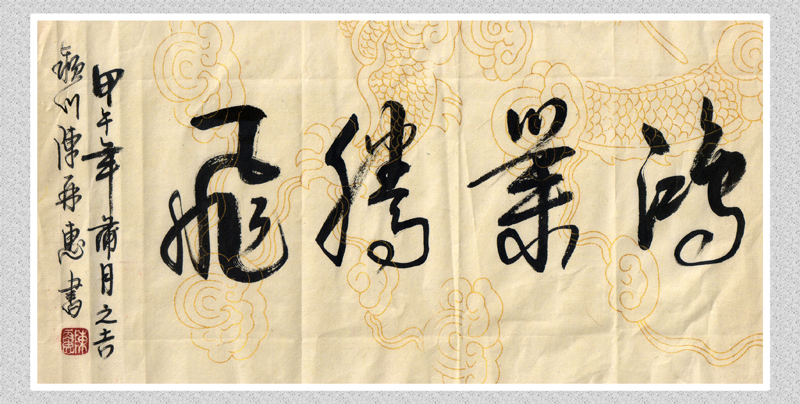 鴻業騰飛
甲午年蒲月之吉
穎川陳再惠書